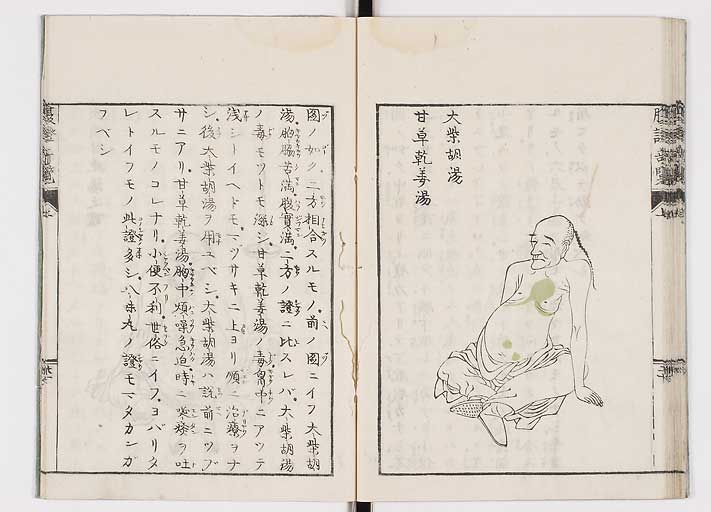 大柴胡湯
甘草乾姜湯
圖ノ如ク二方相合スルモノ前ノ圖ニイフ大柴胡
湯胸脇苦満腹實満二方ノ證ニ比スレバ大柴胡湯
ノ毒モツトモ深シ甘草乾姜湯ノ毒胃中ニアツテ
浅シーイヘドモマヅサキニ上ヨリ順ニ治療ヲナ
シ後大柴胡湯ヲ用ユベシ大柴胡湯ハ説前ニツブ
サニアリ甘草乾姜湯胸中煩噪急迫時ニ唾痰ヲ吐
スルモノコレナリ小便不利世俗ニイフヨバリタ
レトイフモノ此證多シ八味丸ノ證モマタカンガ
フベシ